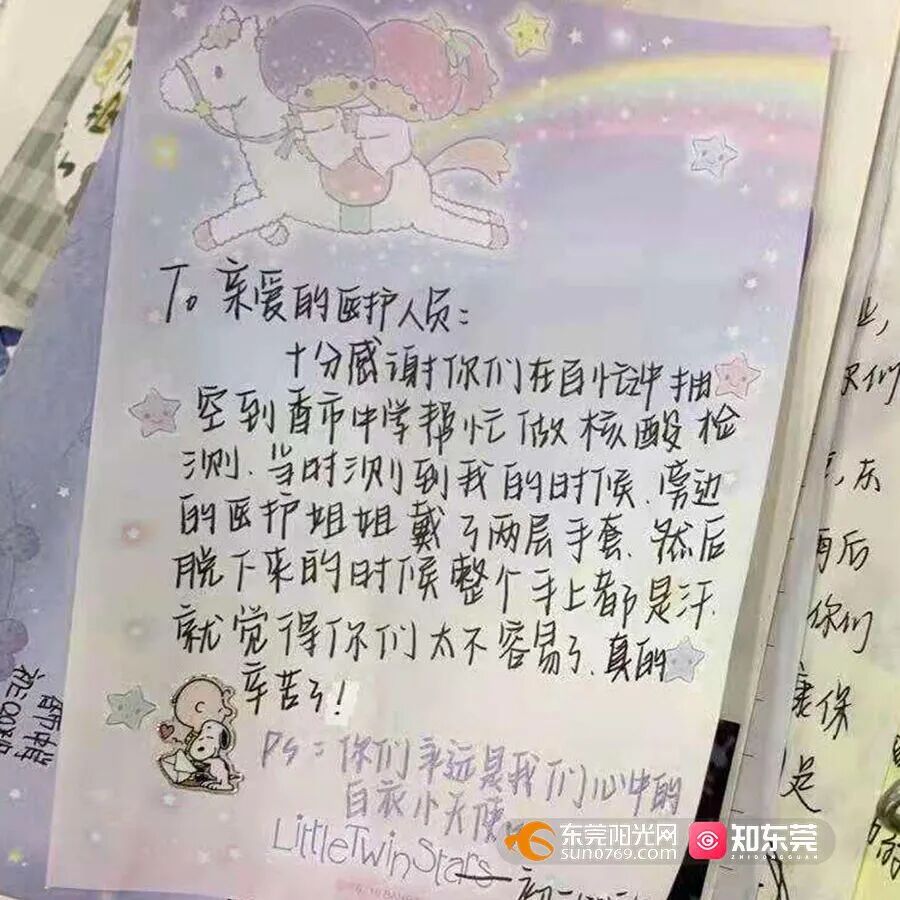 To 亲爱的医护人员：
十分感谢你们在百忙中抽
空到香市中学帮忙做核酸检
测、当时测到我的时候、旁边
的医护姐姐戴了两层手套、然后
脱下来的时候整个手上都是汗.
就觉得你们太不容易了、真的
辛苦了！
PS：你们永远是我们心中的
白衣小天使
LittleTwinStars
业，
你们
再后
你们
康保
是
东莞阳光网
sun0769.com
知东莞
ZHIDONGGUAN